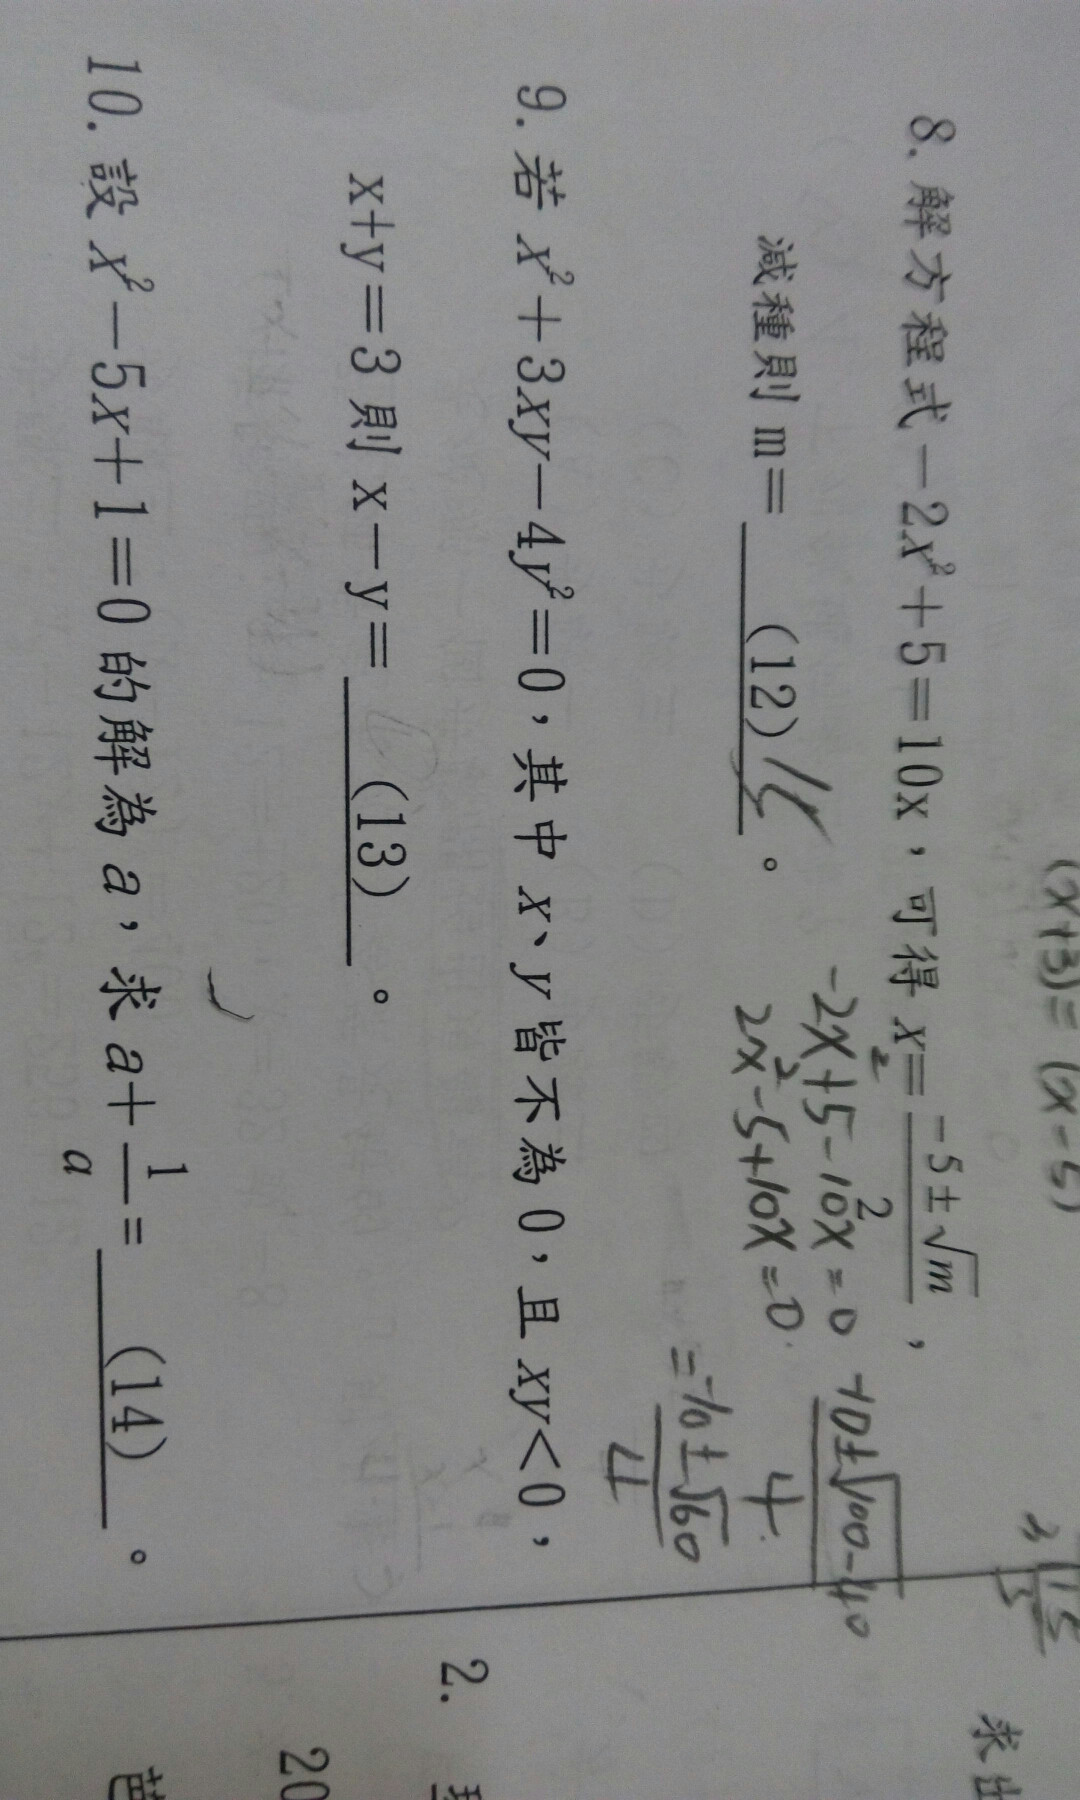 (x+3)=(x-5)
8. 解方程式-2x²+5=10x,可得 x=(-5±√m)/2,
減種則 m= (12) 15 。
-2x²+5-10x=0
2x²-5+10x=0
-10±√100-40
4
=-10±√60
4
9. 若 x²+3xy-4y²=0,其中 x、y 皆不為 0,且 xy<0,
x+y=3 則 x-y= (13) 。
10. 設 x²-5x+1=0 的解為 a,求 a+1/a= (14) 。
求出
2.
20